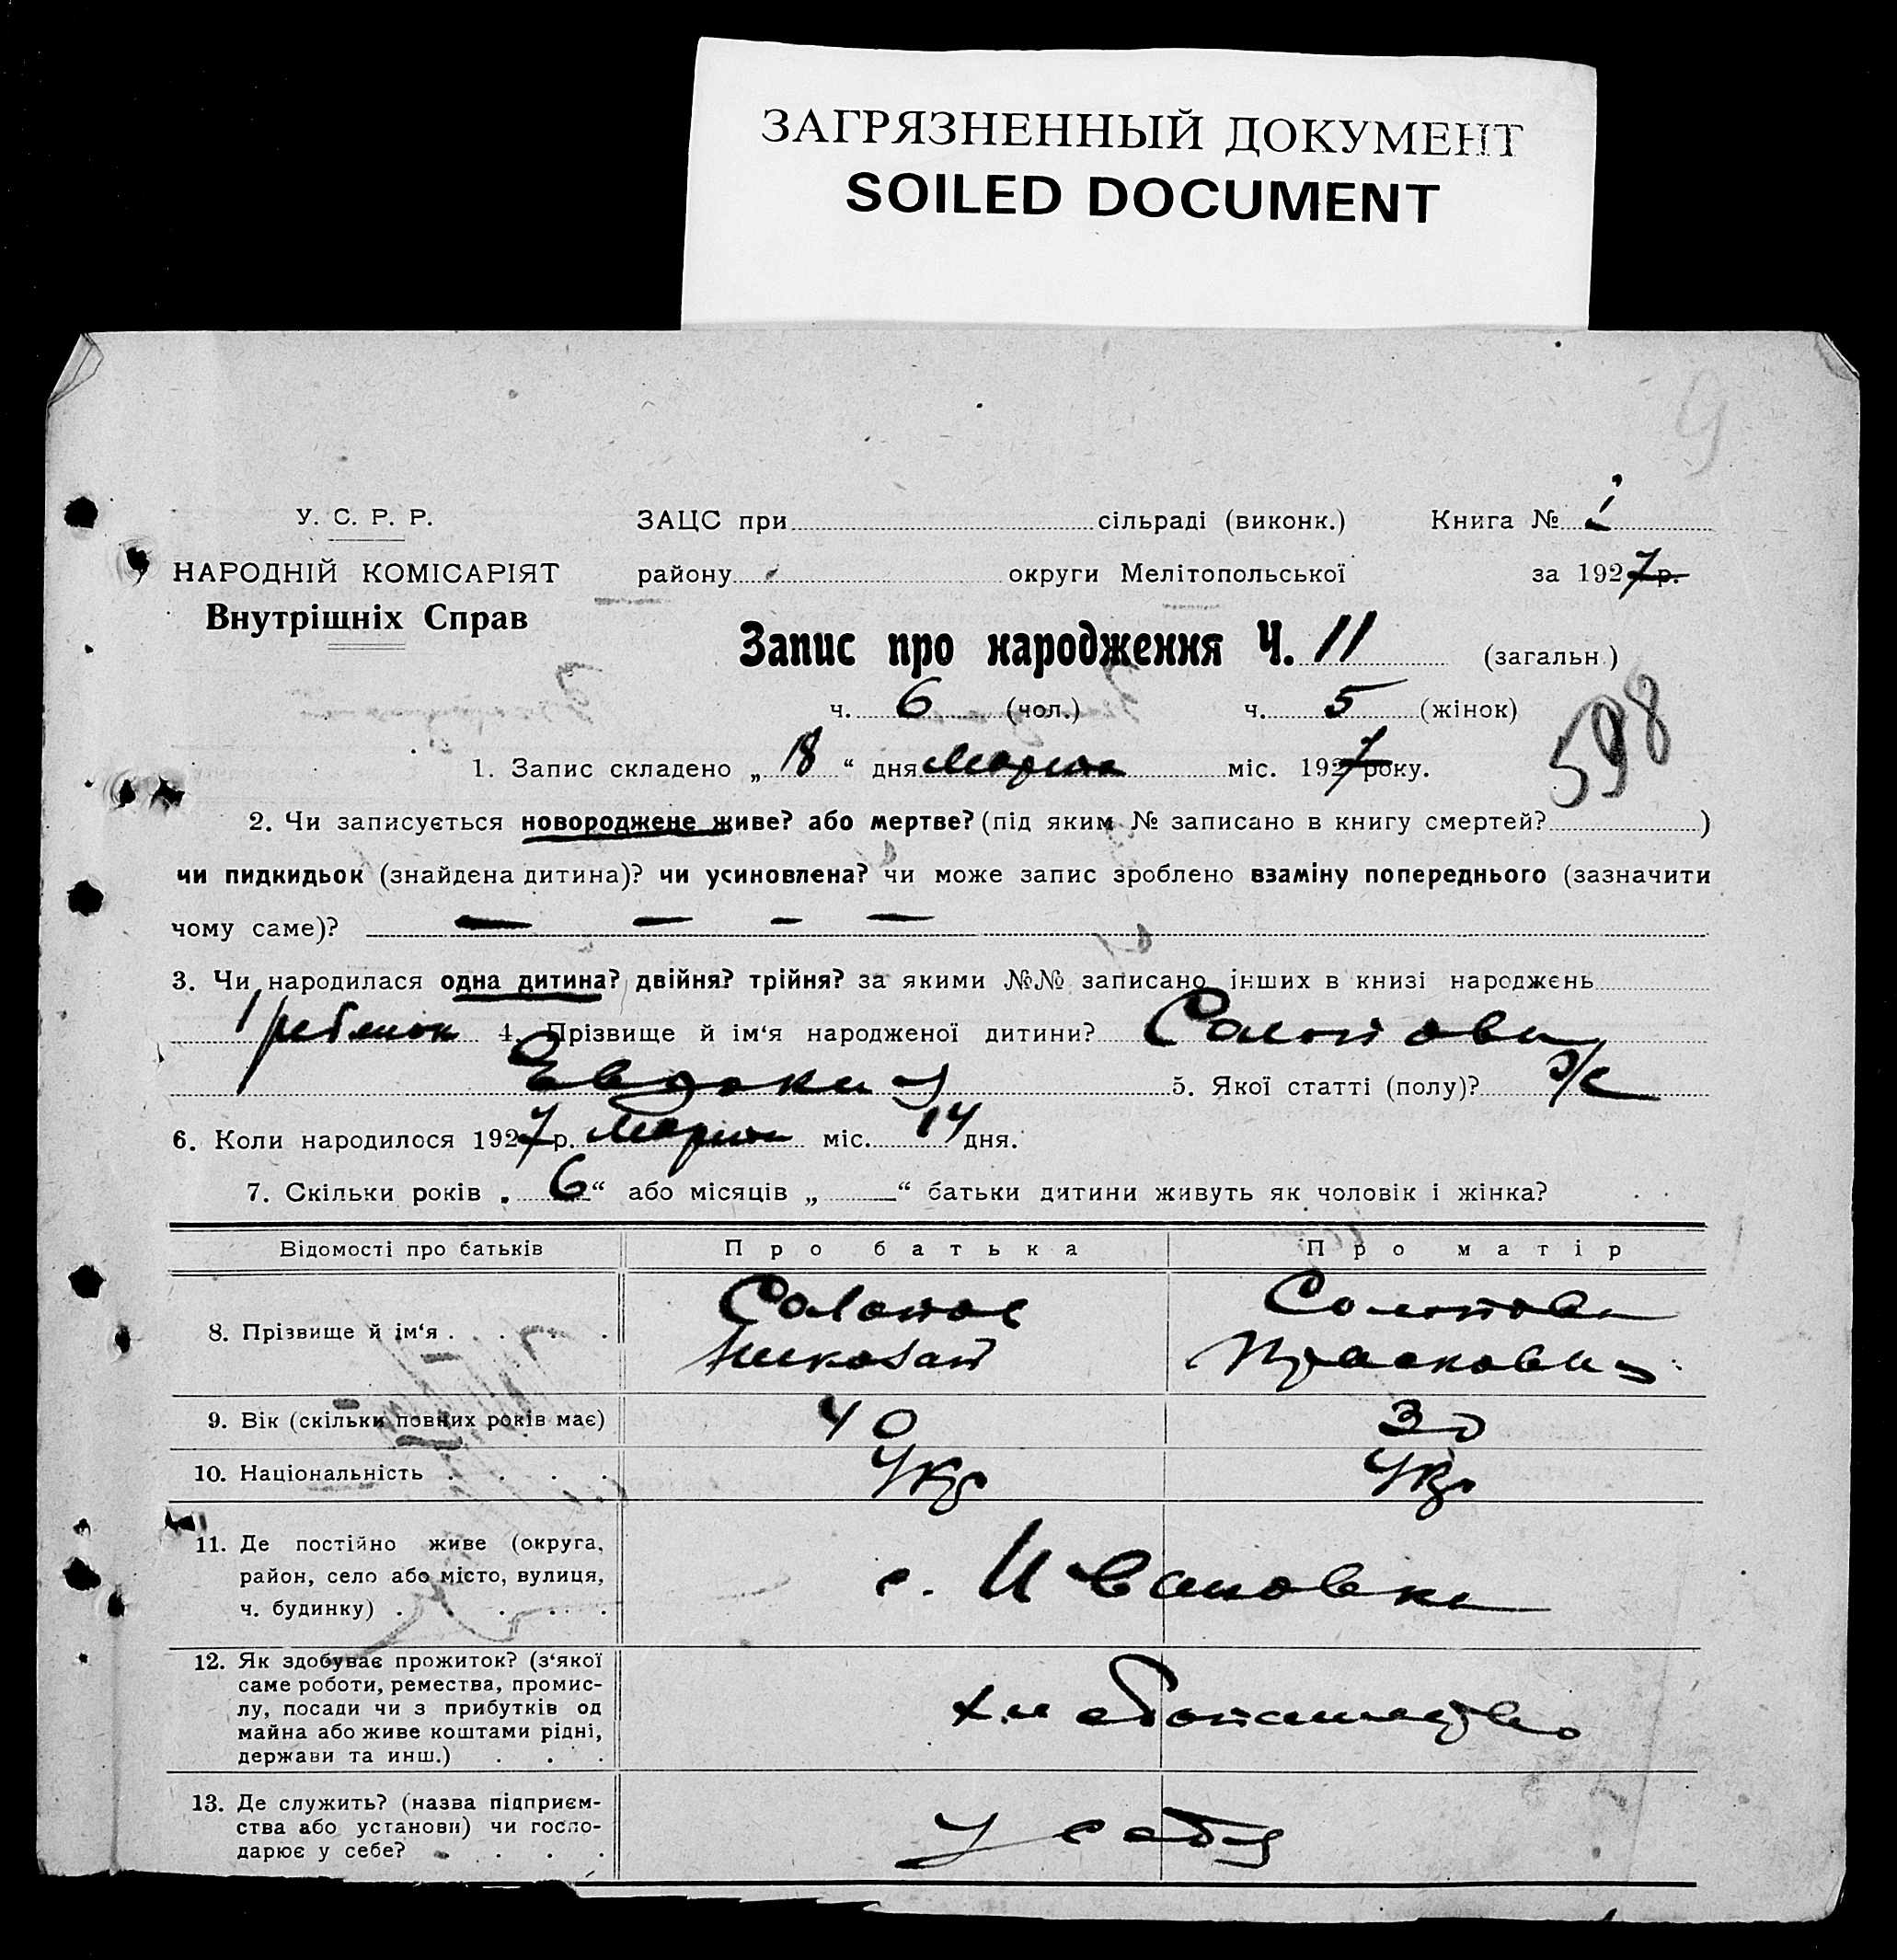 ЗАГРЯЗНЕННЫЙ ДОКУМЕНТ
SOILED DOCUMENT
9
У. С. Р. Р.
ЗАЦС при сільраді (виконк.) Книга № 1
НАРОДНІЙ КОМІСАРІЯТ
району округи Мелітопольської за 1927 р.
Внутрішніх Справ
Запис про народження Ч. 11 (загальн.)
ч. 6 (чол.) ч. 5 (жінок)
598
1. Запис складено „ 18 “ дня Марта міс. 1927 року.
2. Чи записується новороджене живе? або мертве? (під яким № записано в книгу смертей? )
чи пидкидьок (знайдена дитина)? чи усиновлена? чи може запис зроблено взаміну попереднього (зазначити
чому саме)? — — - —
3. Чи народилася одна дитина? двійня? трійня? за якими №№ записано інших в книзі народжень
1 ребенок 4. Прізвище й ім‘я народженої дитини?
Евдокия 5. Якої статті (полу)? ж
6. Коли народилося 1927 р. Марта міс. 14 дня.
7. Скільки років „ 6 “ або місяців „ “ батьки дитини живуть як чоловік і жінка?
Відомості про батьків Про батька Про матір
8. Прізвище й ім‘я . . . .
Николай Прасковия
9. Вік (скільки повних років має) 40 30
10. Національність . . . . Укр Укр
11. Де постійно живе (округа,
район, село або місто, вулиця,
ч. будинку) . . . . .
с. Ивановка
12. Як здобуває прожиток? (з‘якої
саме роботи, ремества, промис-
лу, посади чи з прибутків од
майна або живе коштами рідні,
держави та инш.) . . .
хлебопашество
13. Де служить? (назва підприєм-
ства або установи) чи госпо-
дарює у себе? . . . .
у себя